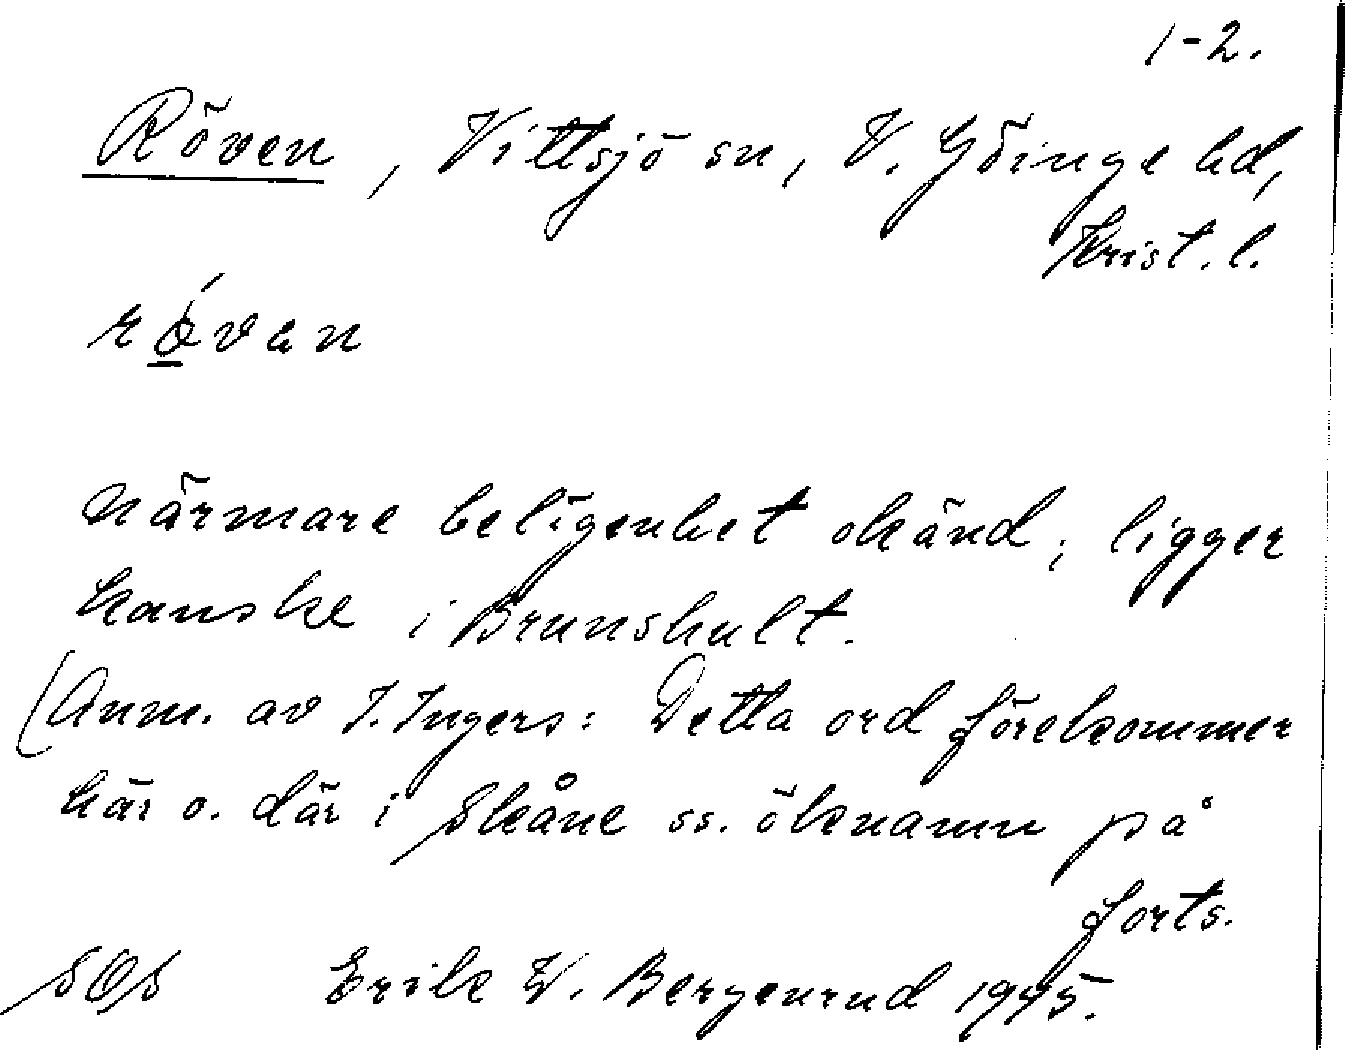 1-2.
Röven, Vittsjö sn, V. Göinge hd,
Krist. l.
rǿ̲ven
närmare belägenhet okänd; ligger
kanske i Brunshult.
(Anm. av I. Ingers: Detta ord förekommer
här o. där i Skåne ss. öknamn på
forts.
SOS Erik W. Bergenrud 1945.